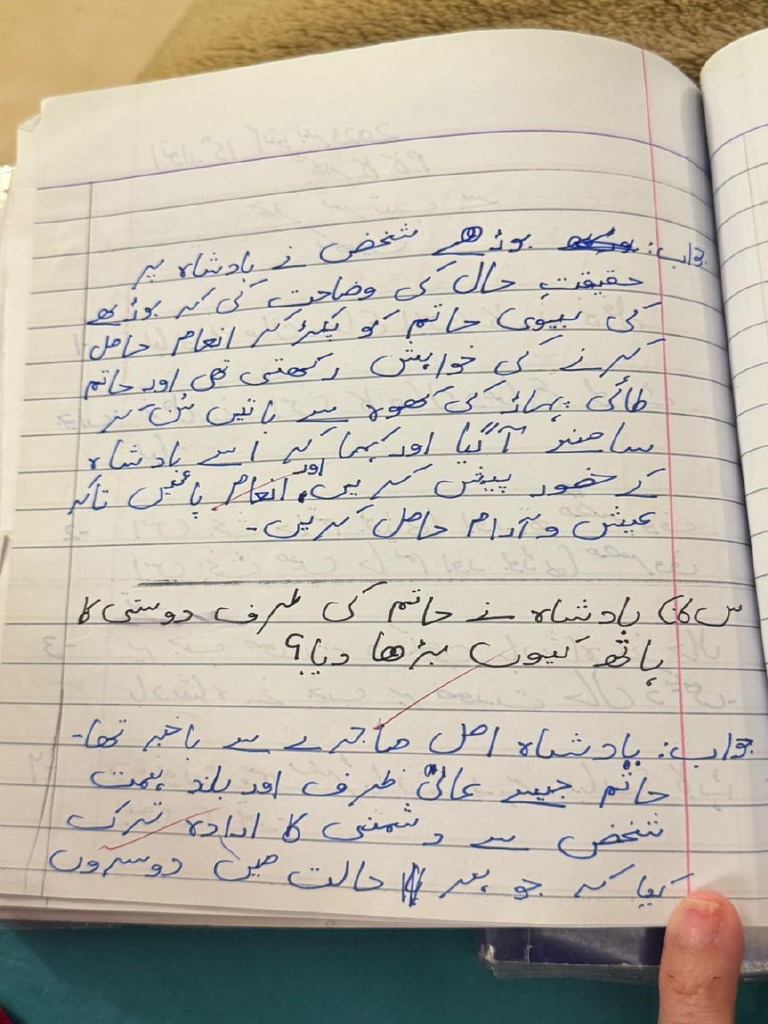 جواب: بوڑھے شخص نے بادشاہ پر
حقیقتِ حال کی وضاحت کی کہ بوڑھے
کی بیوی حاتم کو پکڑ کر انعام حاصل
کرنے کی خواہش رکھتی تھی اور حاتم
طائی پہاڑ کی کھوہ سے باتیں سُن کر
سامنے آگیا اور کہا کہ اسے بادشاہ
کے حضور پیش کریں اور انعام پائیں تاکہ
عیش و آرام حاصل کریں۔
بادشاہ نے حاتم کی طرف دوستی کا
ہاتھ کیوں بڑھا دیا؟
جواب: بادشاہ اصل ماجرے سے باخبر تھا۔
حاتم جیسے عالیٰ ظرف اور بلند ہمت
شخص سے دشمنی کا ارادہ ترک
کیا کہ جو ہر حالت میں دوسروں